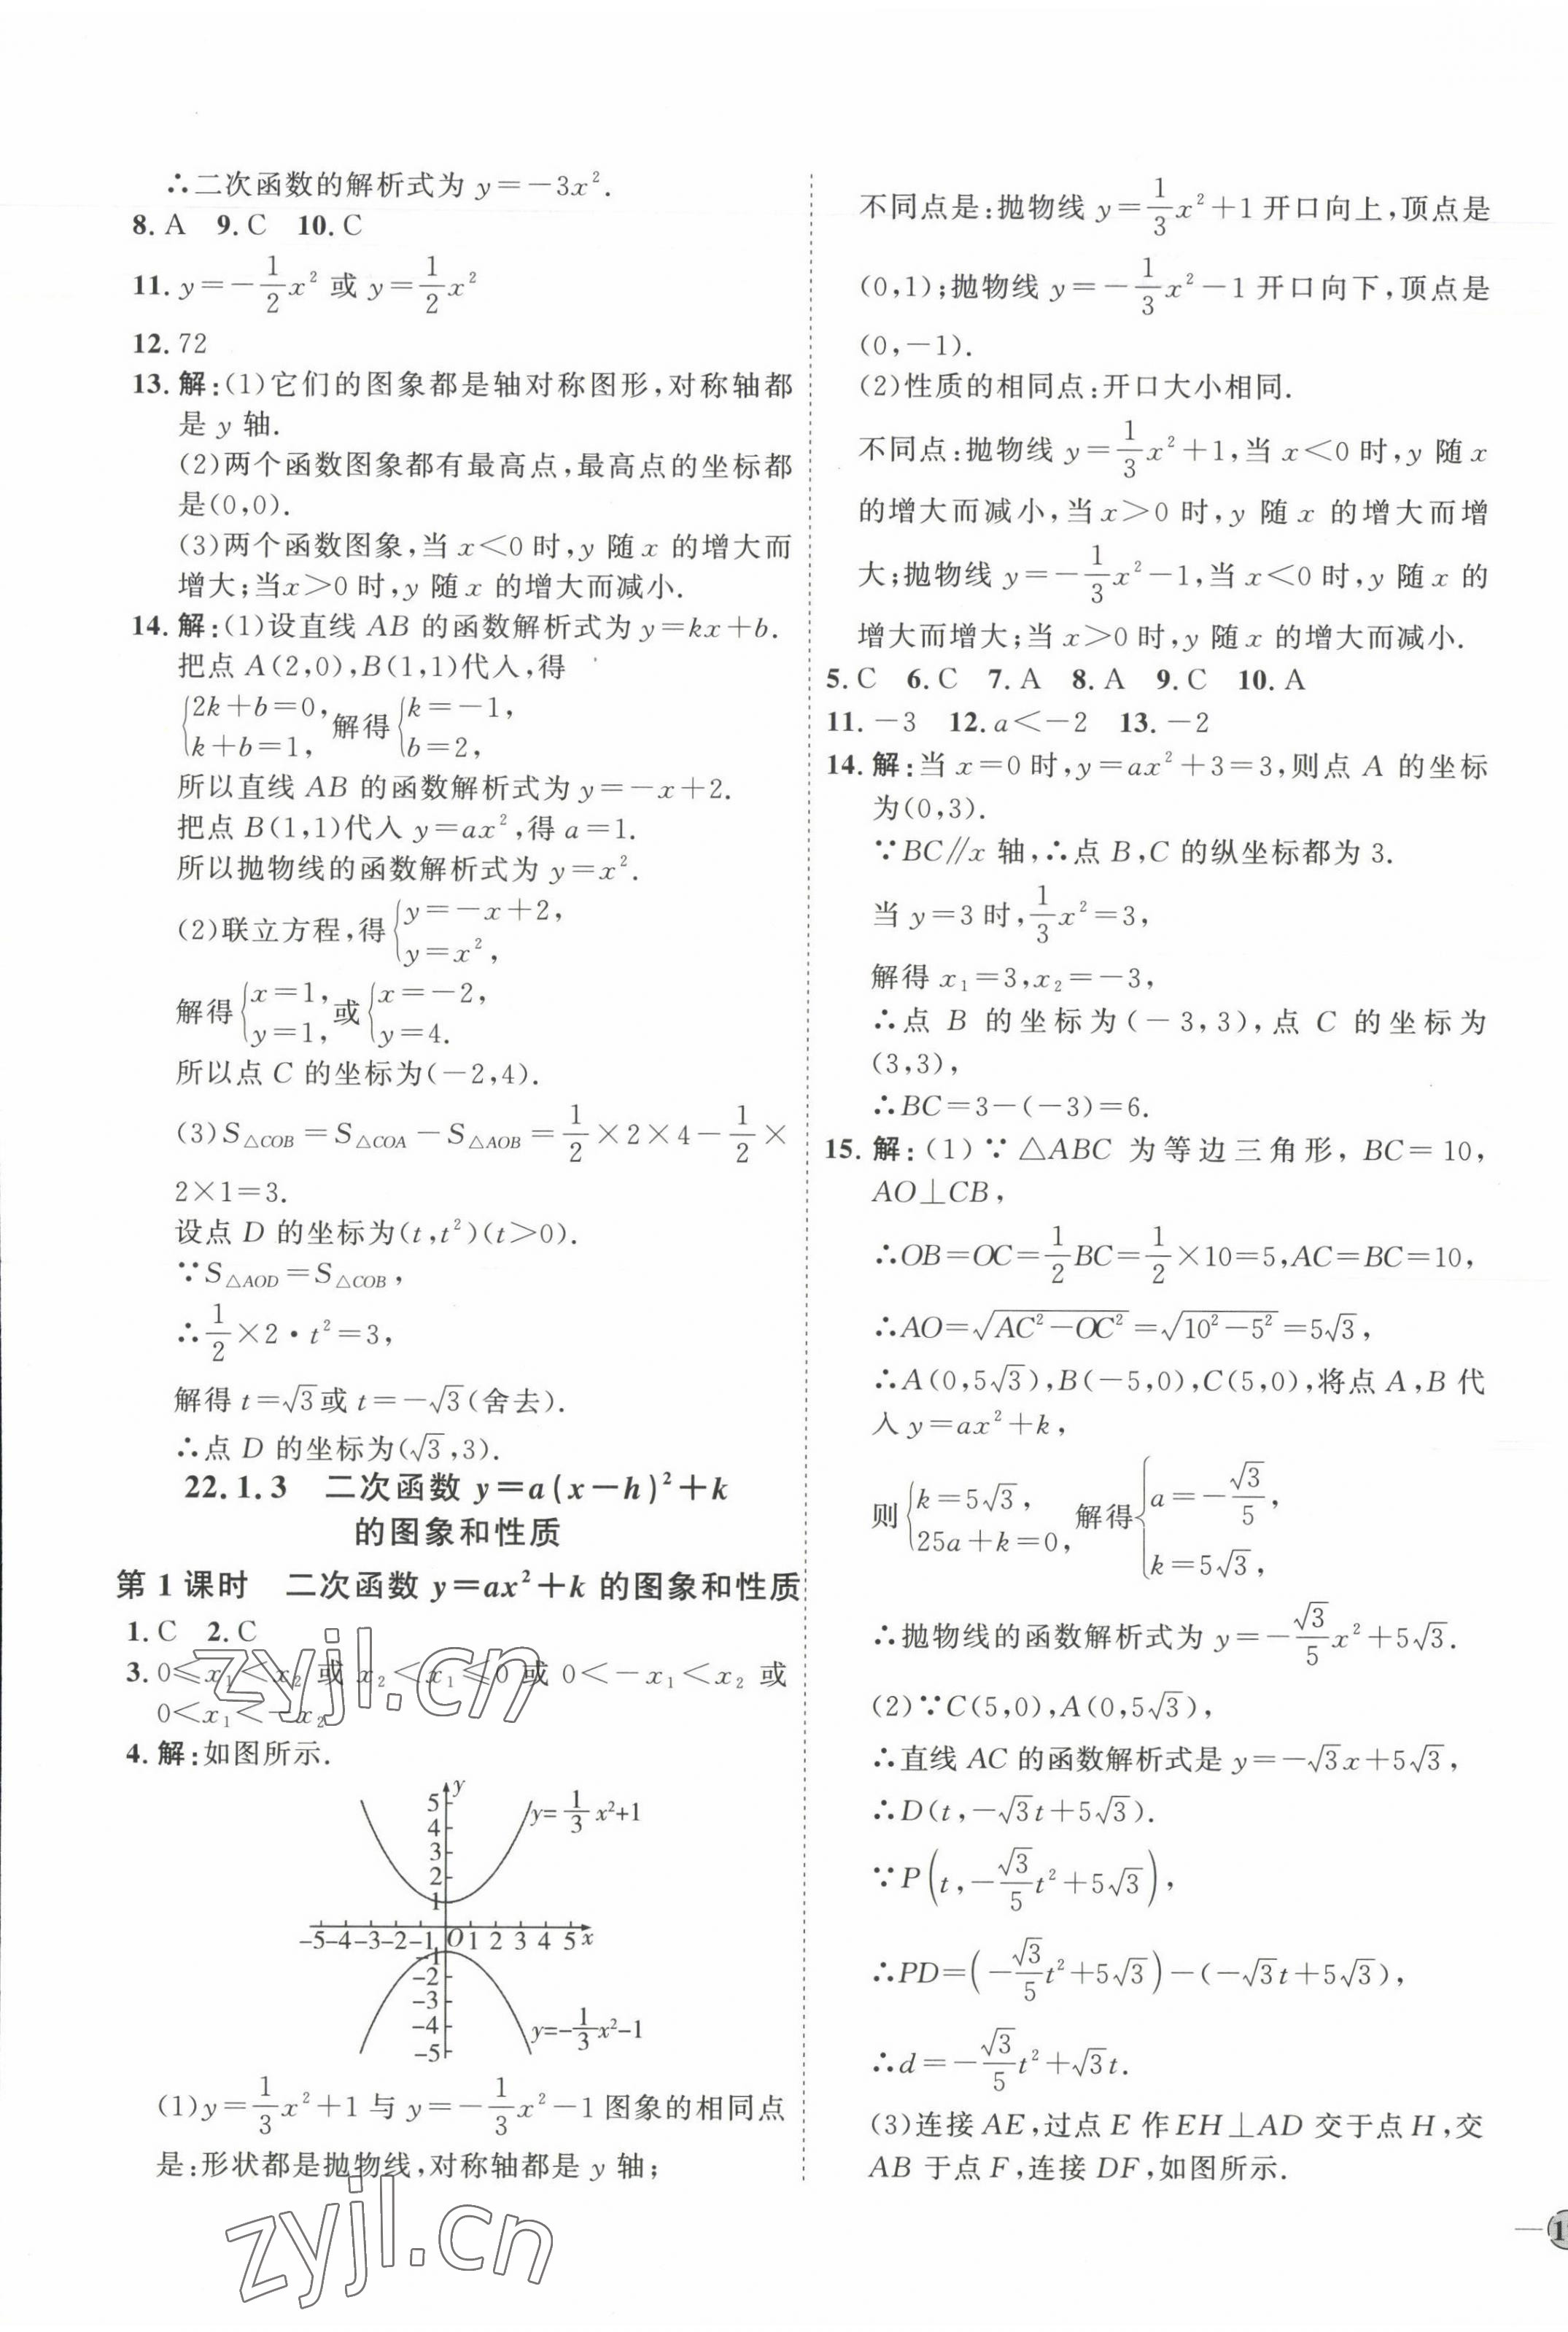 ∴二次函数的解析式为 y=-3x².
8. A 9. C 10. C
11. y=-\frac{1}{2}x² 或 y=\frac{1}{2}x²
12. 72
13. 解:(1)它们的图象都是轴对称图形,对称轴都
是 y 轴.
(2)两个函数图象都有最高点,最高点的坐标都
是(0,0).
(3)两个函数图象,当 x<0 时,y 随 x 的增大而
增大;当x>0 时,y 随 x 的增大而减小.
14. 解:(1)设直线 AB 的函数解析式为 y=kx+b.
把点 A(2,0),B(1,1)代入,得
{2k+b=0, k+b=1, 解得{k=-1, b=2,
所以直线 AB 的函数解析式为 y=-x+2.
把点 B(1,1)代入 y=ax²,得 a=1.
所以抛物线的函数解析式为 y=x².
(2)联立方程,得{y=-x+2, y=x²,
解得{x=1, y=1, 或{x=-2, y=4.
所以点 C 的坐标为(-2,4).
(3)S△COB=S△COA-S△AOB=\frac{1}{2}×2×4-\frac{1}{2}×
2×1=3.
设点 D 的坐标为(t,t²)(t>0).
∵S△AOD=S△COB,
∴\frac{1}{2}×2·t²=3,
解得 t=√3或 t=-√3(舍去).
∴点 D 的坐标为(√3,3).
22.1.3 二次函数 y=a(x-h)²+k
的图象和性质
第 1 课时 二次函数 y=ax²+k 的图象和性质
1. C 2. C
3. 0≤x₁<x₂ 或 x₂<x₁≤0 或 0<-x₁<x₂ 或
0<x₁<-x₂
4. 解:如图所示.
y
5
4
3
2
1
y=\frac{1}{3}x²+1
-5 -4 -3 -2 -1 O 1 2 3 4 5 x
-1
-2
-3
-4
-5
y=-\frac{1}{3}x²-1
(1)y=\frac{1}{3}x²+1 与 y=-\frac{1}{3}x²-1 图象的相同点
是:形状都是抛物线,对称轴都是 y 轴;
不同点是:抛物线 y=\frac{1}{3}x²+1 开口向上,顶点是
(0,1);抛物线 y=-\frac{1}{3}x²-1 开口向下,顶点是
(0,-1).
(2)性质的相同点:开口大小相同.
不同点:抛物线 y=\frac{1}{3}x²+1,当 x<0 时,y 随 x
的增大而减小,当 x>0 时,y 随 x 的增大而增
大;抛物线 y=-\frac{1}{3}x²-1,当 x<0 时,y 随 x 的
增大而增大;当 x>0 时,y 随 x 的增大而减小.
5. C 6. C 7. A 8. A 9. C 10. A
11. -3 12. a<-2 13. -2
14. 解:当 x=0 时,y=ax²+3=3,则点 A 的坐标
为(0,3).
∵BC∥x 轴,∴点 B,C 的纵坐标都为 3.
当 y=3 时,\frac{1}{3}x²=3,
解得 x₁=3,x₂=-3,
∴点 B 的坐标为(-3,3),点 C 的坐标为
(3,3),
∴BC=3-(-3)=6.
15. 解:(1)∵△ABC 为等边三角形, BC=10,
AO⊥CB,
∴OB=OC=\frac{1}{2}BC=\frac{1}{2}×10=5,AC=BC=10,
∴AO=√(AC²-OC²)=√(10²-5²)=5√3,
∴A(0,5√3),B(-5,0),C(5,0),将点 A,B 代
入 y=ax²+k,
则{k=5√3, 25a+k=0, 解得{a=-\frac{√3}{5}, k=5√3,
∴抛物线的函数解析式为 y=-\frac{√3}{5}x²+5√3.
(2)∵C(5,0),A(0,5√3),
∴直线 AC 的函数解析式是 y=-√3x+5√3,
∴D(t,-√3t+5√3).
∵P(t,-\frac{√3}{5}t²+5√3),
∴PD=(-\frac{√3}{5}t²+5√3)-(-√3t+5√3),
∴d=-\frac{√3}{5}t²+√3t.
(3)连接 AE,过点 E 作EH⊥AD 交于点 H,交
AB 于点 F,连接 DF,如图所示.
zyjl.cn
zyjl.cn